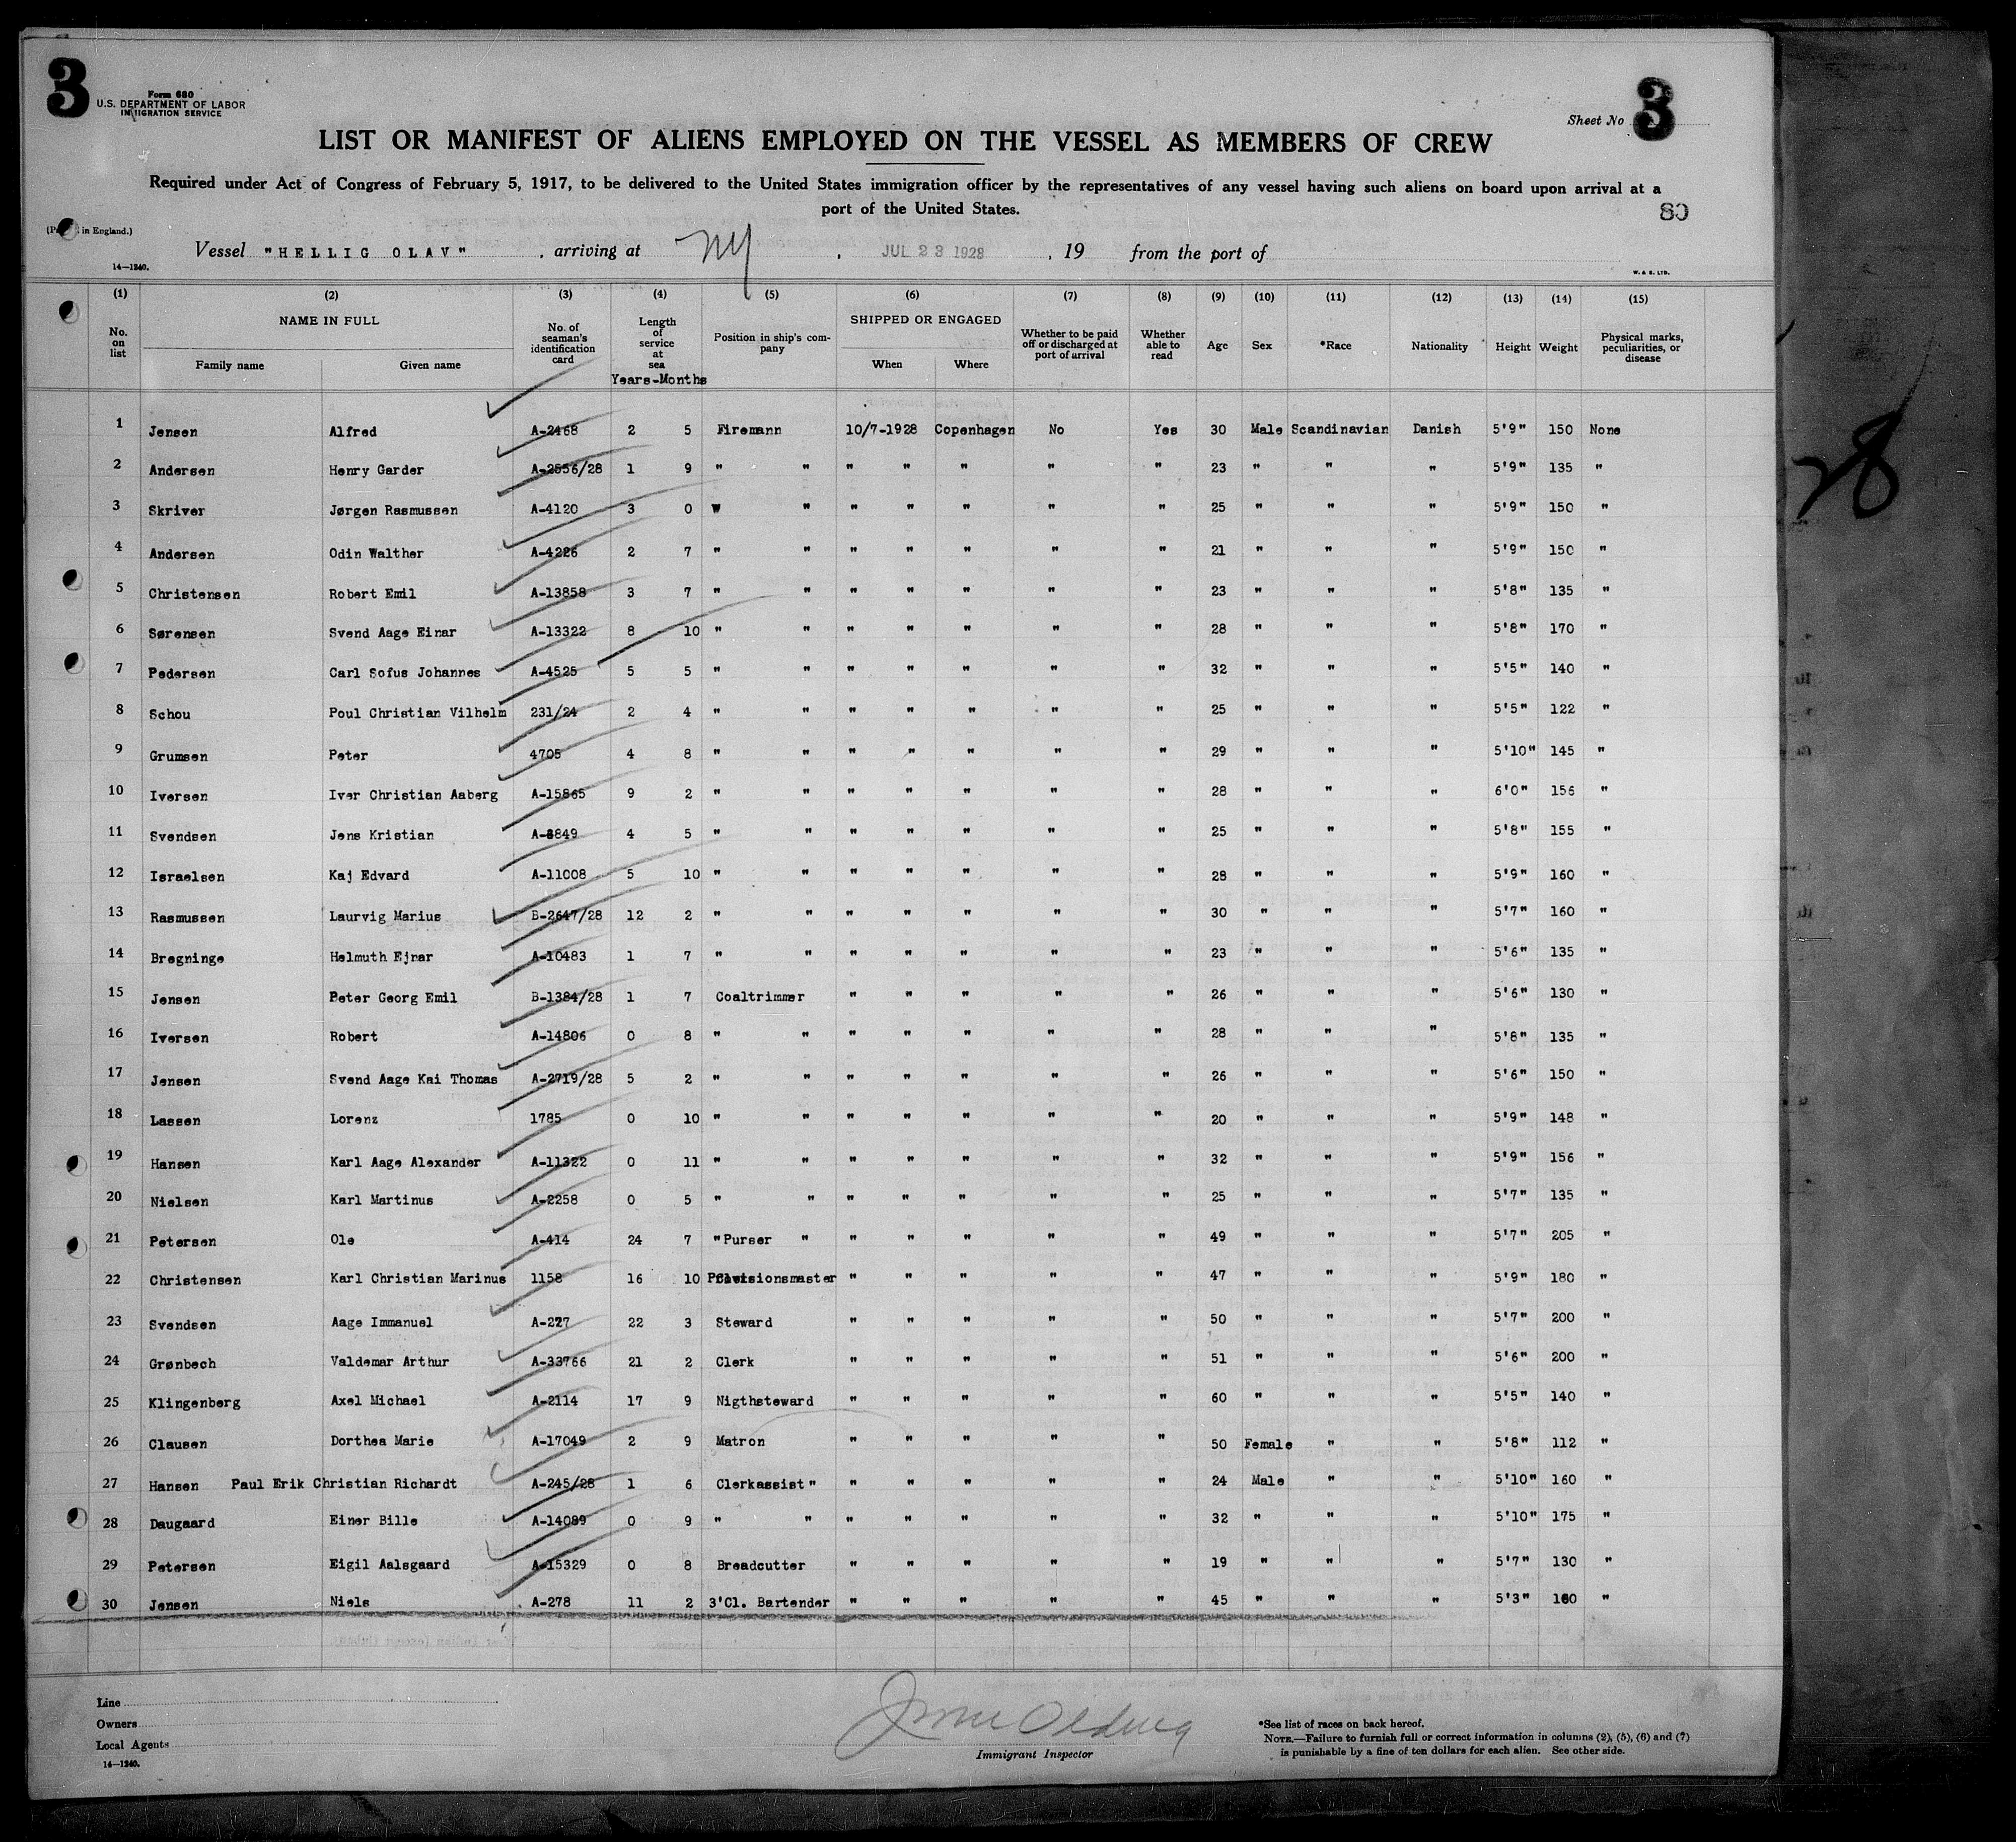 3
Form 680
U.S. DEPARTMENT OF LABOR
IMMIGRATION SERVICE
Sheet No 3
LIST OR MANIFEST OF ALIENS EMPLOYED ON THE VESSEL AS MEMBERS OF CREW
Required under Act of Congress of February 5, 1917, to be delivered to the United States immigration officer by the representatives of any vessel having such aliens on board upon arrival at a
port of the United States.
80
in England.)
Vessel "HELLIG OLAV" , arriving at NY , JUL 23 1928 , 19 from the port of
14—1240.
W. & S. LTD.
(1) (2) (3) (4) (5) (6) (7) (8) (9) (10) (11) (12) (13) (14) (15)
No. on list NAME IN FULL Family name Given name No. of seaman's identification card Length of service at sea Years-Months Position in ship's company SHIPPED OR ENGAGED When Where Whether to be paid off or discharged at port of arrival Whether able to read Age Sex *Race Nationality Height Weight Physical marks, peculiarities, or disease
1 Jensen Alfred A-2468 2 5 Firemann 10/7-1928 Copenhagen No Yes 30 Male Scandinavian Danish 5'9" 150 None
2 Andersen Henry Garder A-2556/28 1 9 " " " " " " " 23 " " " 5'9" 135 "
3 Skriver Jørgen Rasmussen A-4120 3 0 " " " " " " " 25 " " " 5'9" 150 "
4 Andersen Odin Walther A-4226 2 7 " " " " " " " 21 " " " 5'9" 150 "
5 Christensen Robert Emil A-13858 3 7 " " " " " " " 23 " " " 5'8" 135 "
6 Sørensen Svend Aage Einar A-13322 8 10 " " " " " " " 28 " " " 5'8" 170 "
7 Pedersen Carl Sofus Johannes A-4525 5 5 " " " " " " " 32 " " " 5'5" 140 "
8 Schou Poul Christian Vilhelm 231/24 2 4 " " " " " " " 25 " " " 5'5" 122 "
9 Grumsen Peter 4705 4 8 " " " " " " " 29 " " " 5'10" 145 "
10 Iversen Iver Christian Aaberg A-15865 9 2 " " " " " " " 28 " " " 6'0" 156 "
11 Svendsen Jens Kristian A-8849 4 5 " " " " " " " 25 " " " 5'8" 155 "
12 Israelsen Kaj Edvard A-11008 5 10 " " " " " " " 28 " " " 5'9" 160 "
13 Rasmussen Laurvig Marius B-2647/28 12 2 " " " " " " " 30 " " " 5'7" 160 "
14 Bregninge Helmuth Ejnar A-10483 1 7 " " " " " " " 23 " " " 5'6" 135 "
15 Jensen Peter Georg Emil B-1384/28 1 7 Coaltrimmer " " " " " 26 " " " 5'6" 130 "
16 Iversen Robert A-14806 0 8 " " " " " " " 28 " " " 5'8" 135 "
17 Jensen Svend Aage Kai Thomas A-2719/28 5 2 " " " " " " " 26 " " " 5'6" 150 "
18 Lassen Lorenz 1785 0 10 " " " " " " " 20 " " " 5'9" 148 "
19 Hansen Karl Aage Alexander A-11322 0 11 " " " " " " " 32 " " " 5'9" 156 "
20 Nielsen Karl Martinus A-2258 0 5 " " " " " " " 25 " " " 5'7" 135 "
21 Petersen Ole A-414 24 7 " Purser " " " " " " 49 " " " 5'7" 205 "
22 Christensen Karl Christian Marinus 1158 16 10 Provisionsmaster " " " " " 47 " " " 5'9" 180 "
23 Svendsen Aage Immanuel A-227 22 3 Steward " " " " " 50 " " " 5'7" 200 "
24 Grønbech Valdemar Arthur A-33766 21 2 Clerk " " " " " 51 " " " 5'6" 200 "
25 Klingenberg Axel Michael A-2114 17 9 Nigthsteward " " " " " 60 " " " 5'5" 140 "
26 Clausen Dorthea Marie A-17049 2 9 Matron " " " " " 50 Female " " 5'8" 112 "
27 Hansen Paul Erik Christian Richardt A-245/28 1 6 Clerkassist" " " " " " 24 Male " " 5'10" 160 "
28 Daugaard Einer Bille A-14089 0 9 " " " " " " " 32 " " " 5'10" 175 "
29 Petersen Eigil Aalsgaard A-15329 0 8 Breadcutter " " " " " 19 " " " 5'7" 130 "
30 Jensen Niels A-278 11 2 3'Cl. Bartender " " " " " 45 " " " 5'3" 160 "
28
Line
Owners
Local Agents
14—1240.
Immigrant Inspector
*See list of races on back hereof.
NOTE.—Failure to furnish full or correct information in columns (2), (5), (6) and (7)
is punishable by a fine of ten dollars for each alien. See other side.